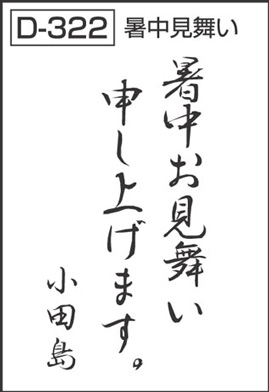 D-322 暑中見舞い
暑中お見舞い
申し上げます。
小田島